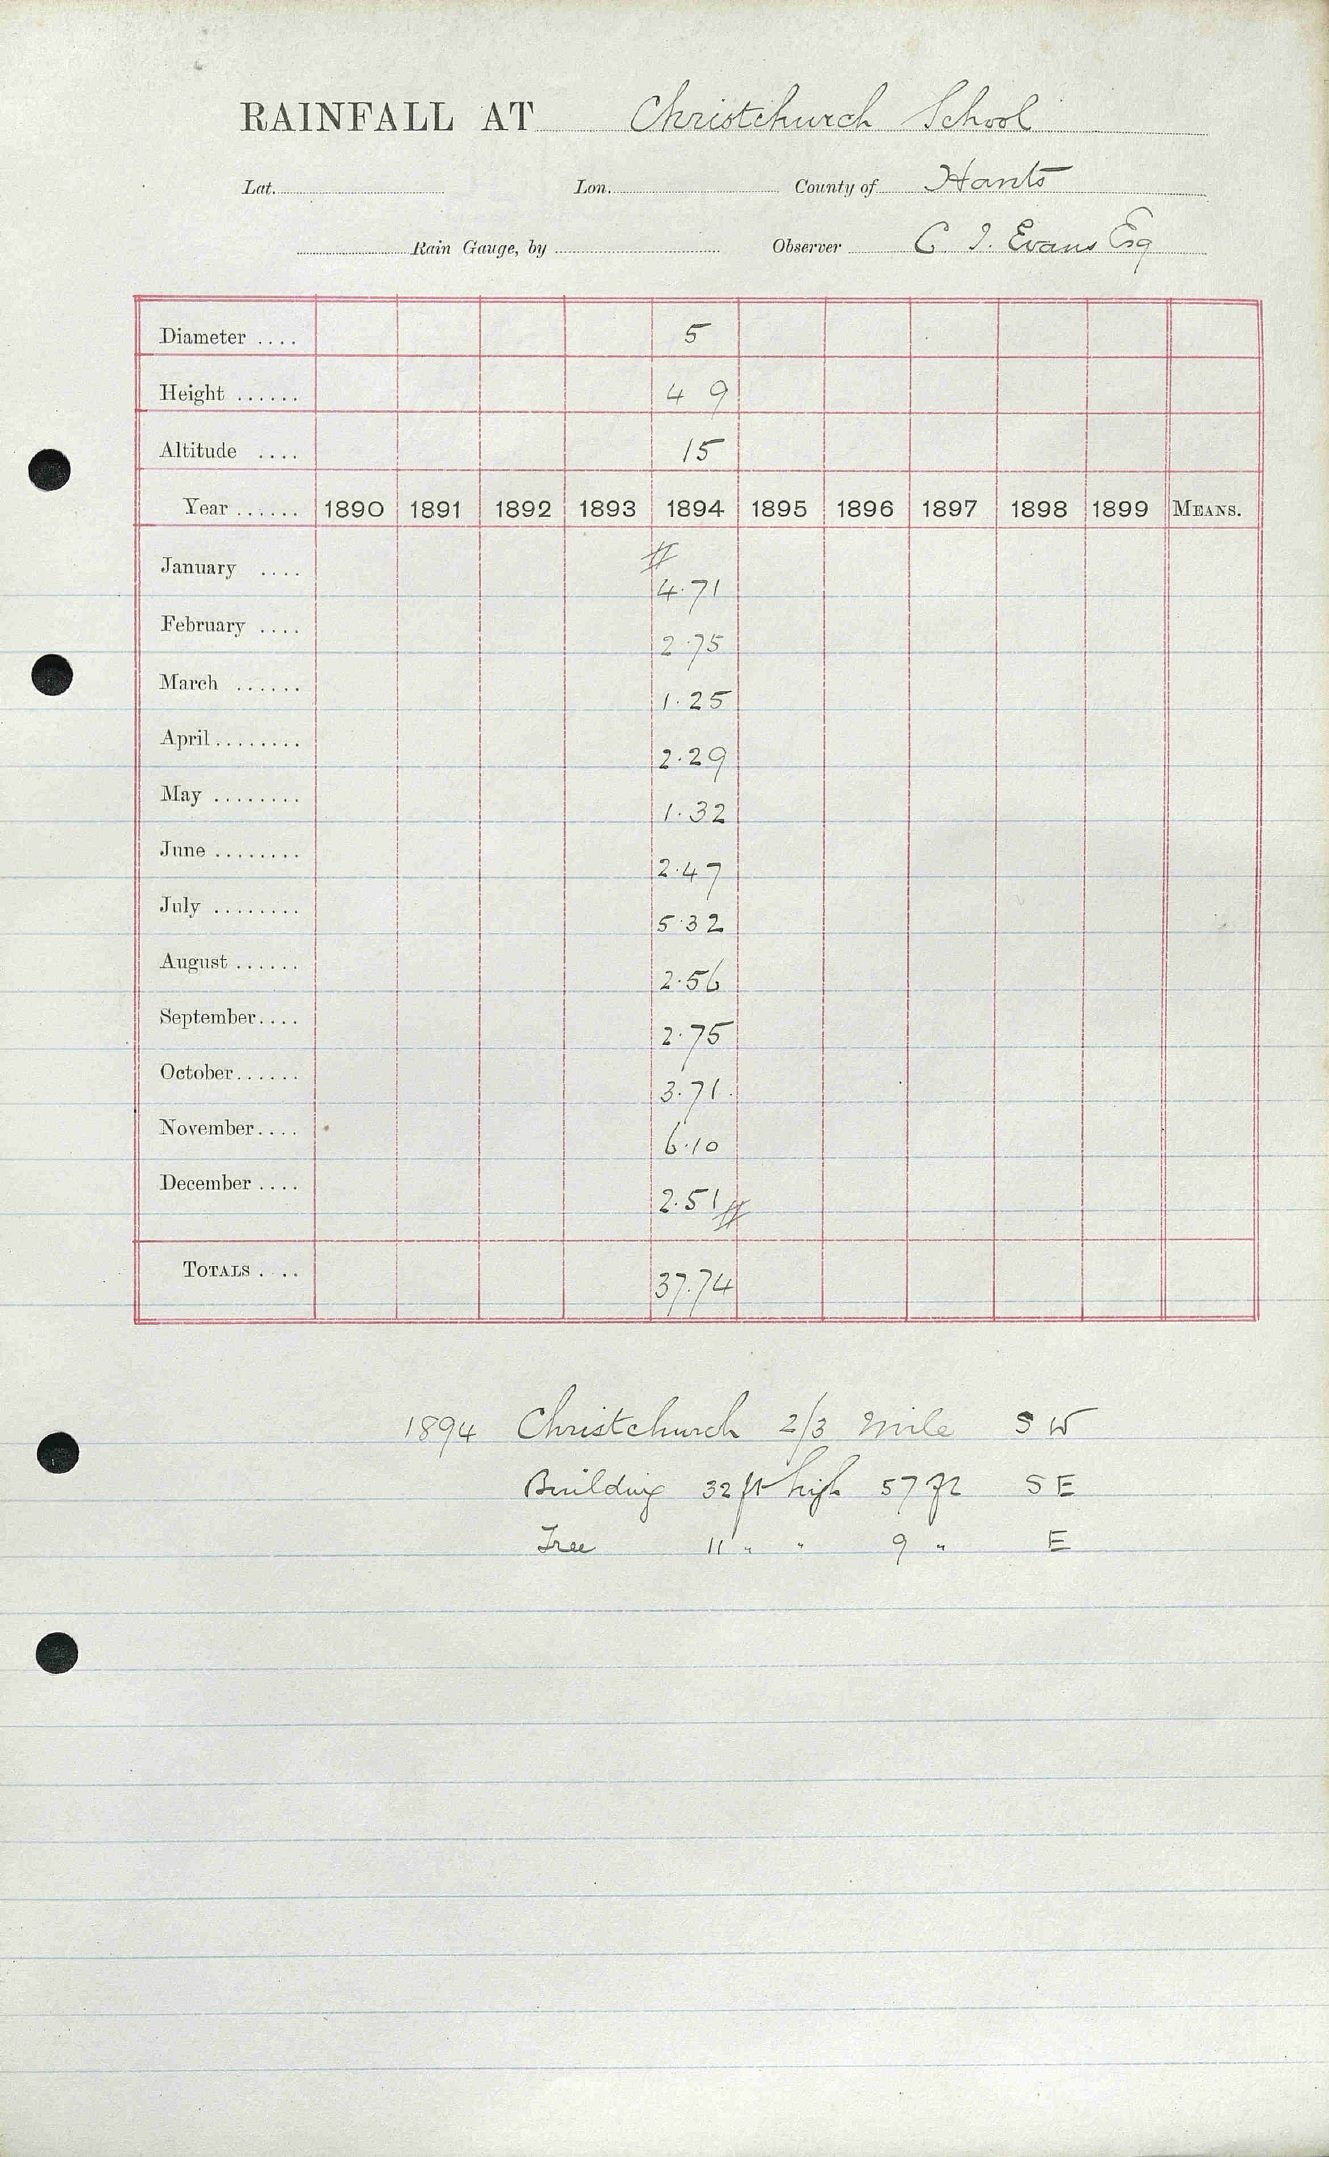 RAINFALL AT Christchurch School
Lat. Lon. County of Hants
Rain Gauge, by Observer C. I. Evans Esq
Diameter .... 5
Height ...... 4 9
Altitude .... 15
Year ...... 1890 1891 1892 1893 1894 1895 1896 1897 1898 1899 MEANS.
January .... # 4.71
February .... 2.75
March ...... 1.25
April ........ 2.29
May ........ 1.32
June ........ 2.47
July ........ 5.32
August ...... 2.56
September.... 2.75
October...... 3.71.
November.... 6.10
December .... 2.51 #
TOTALS .... 37.74
1894 Christchurch 2/3 mile S W
Building 32 ft high 57 ft S E
Tree 11 " " 9 " E